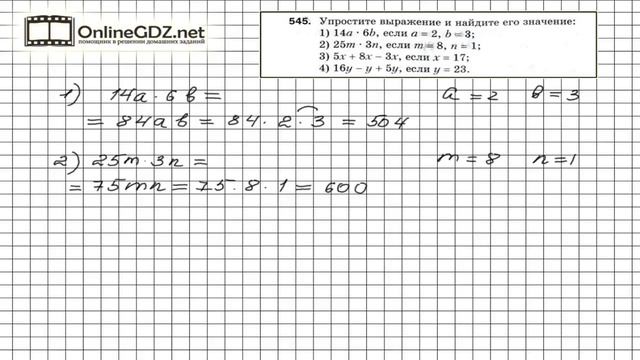 OnlineGDZ.net
помощник в решении домашних заданий
545. Упростите выражение и найдите его значение:
1) 14a · 6b, если a = 2, b = 3;
2) 25m · 3n, если m = 8, n = 1;
3) 5x + 8x − 3x, если x = 17;
4) 16y − y + 5y, если y = 23.
1) 14a · 6b = a = 2 b = 3
= 84ab = 84 · 2 · 3 = 504
2) 25m · 3n = m = 8 n = 1
= 75mn = 75 · 8 · 1 = 600